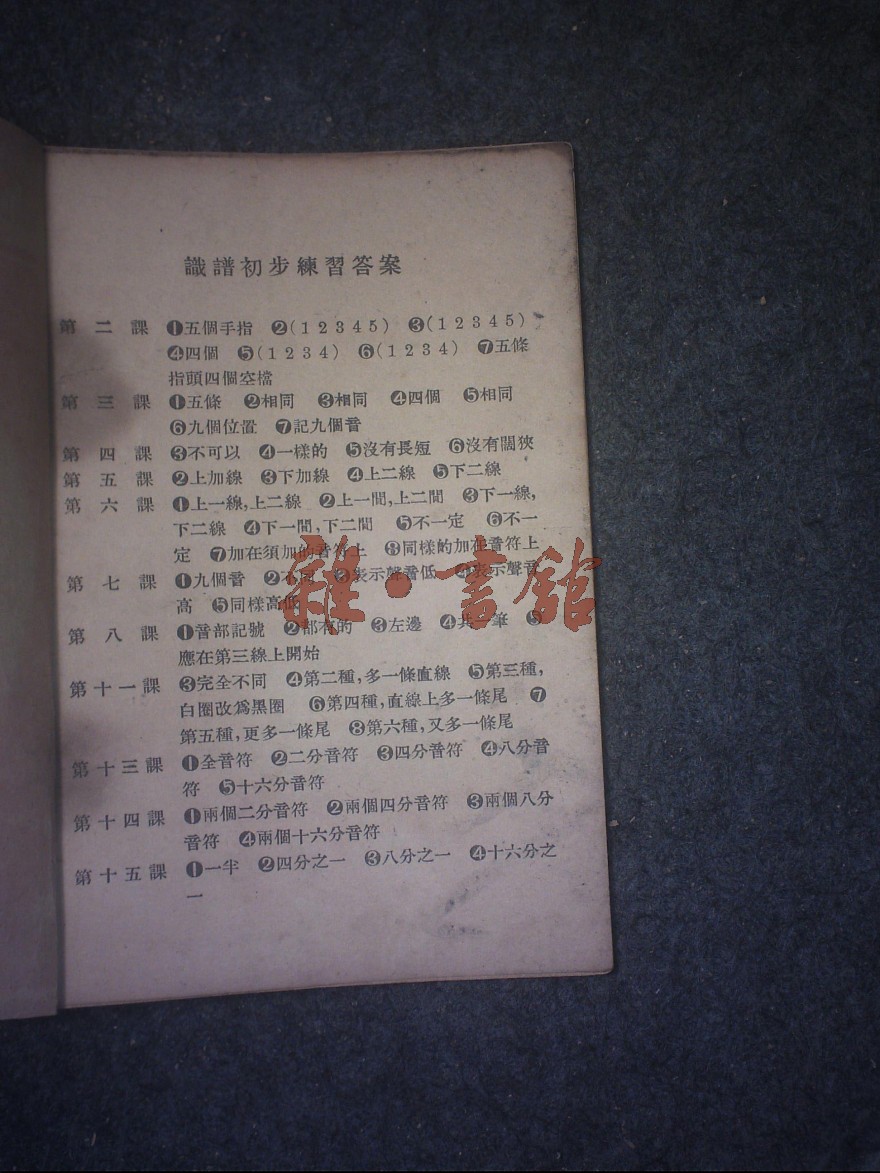 識譜初步練習答案
第二課 ❶五個手指 ❷(12345) ❸(12345)
❹四個 ❺(1234) ❻(1234) ❼五條
指頭四個空檔
第三課 ❶五條 ❷相同 ❸相同 ❹四個 ❺相同
❻九個位置 ❼記九個音
第四課 ❸不可以 ❹一樣的 ❺沒有長短 ❻沒有闊狹
第五課 ❷上加線 ❸下加線 ❹上二線 ❺下二線
第六課 ❶上一線,上二線 ❷上一間,上二間 ❸下一線,
下二線 ❹下一間,下二間 ❺不一定 ❻不一
定 ❼加在須加的音符上 ❽同樣的加在音符上
第七課 ❶九個音 ❷不同 ❸表示聲音低 ❹表示聲音
高 ❺同樣高低
第八課 ❶音部記號 ❷都有的 ❸左邊 ❹共一筆 ❺
應在第三線上開始
第十一課 ❸完全不同 ❹第二種,多一條直線 ❺第三種,
白圈改爲黑圈 ❻第四種,直線上多一條尾 ❼
第五種,更多一條尾 ❽第六種,又多一條尾
第十三課 ❶全音符 ❷二分音符 ❸四分音符 ❹八分音
符 ❺十六分音符
第十四課 ❶兩個二分音符 ❷兩個四分音符 ❸兩個八分
音符 ❹兩個十六分音符
第十五課 ❶一半 ❷四分之一 ❸八分之一 ❹十六分之
一
雜·書館